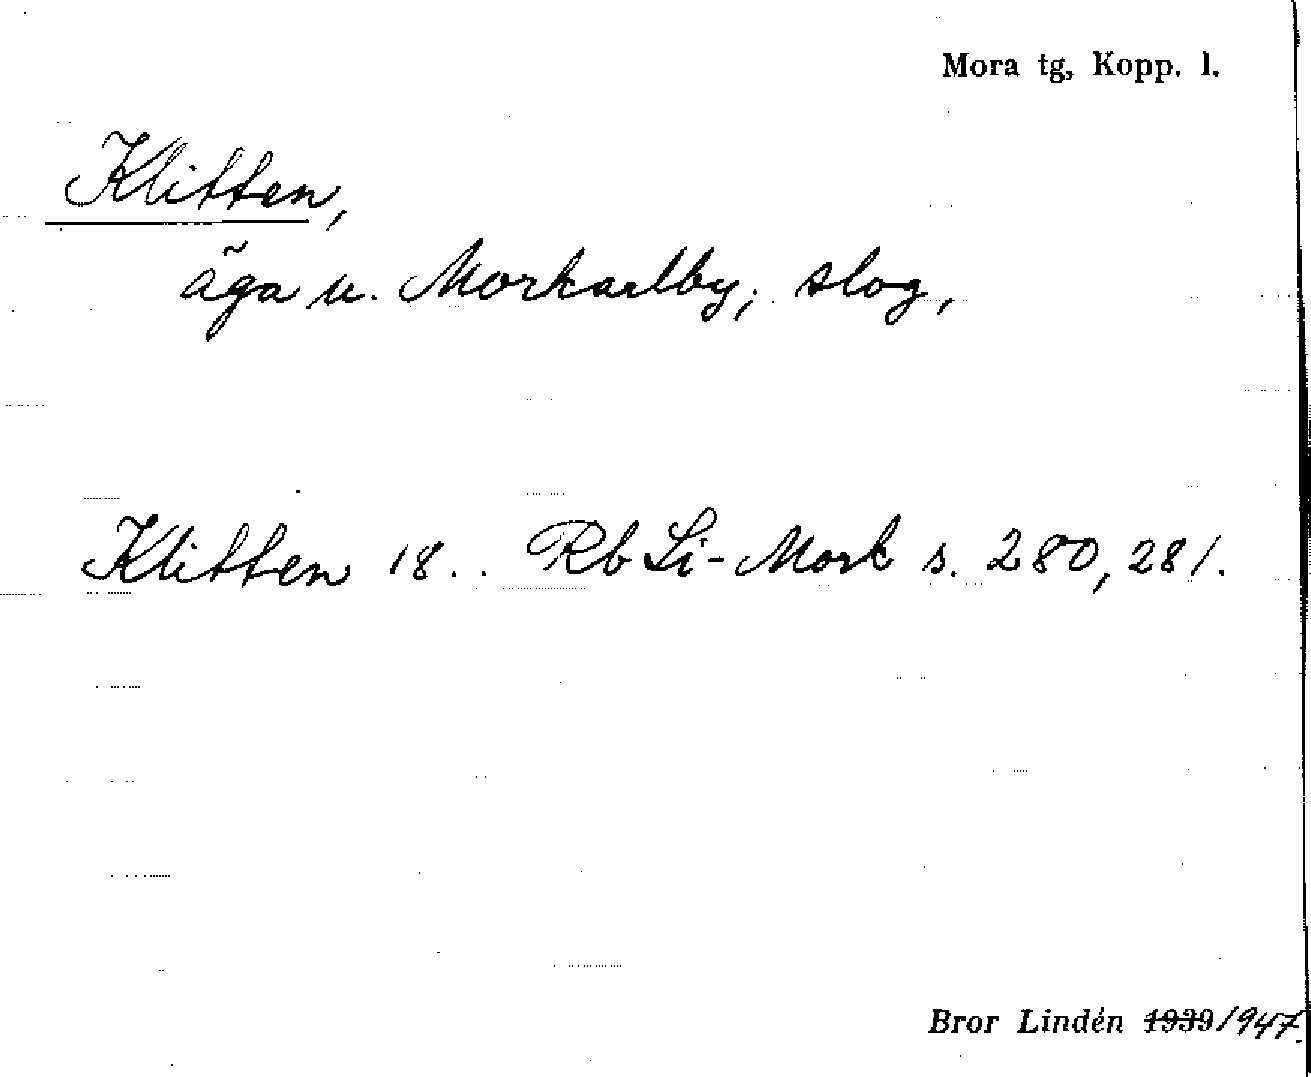 Mora tg, Kopp. l.
Klitten,
äga u. Morkarlby; slog,
Klitten 18.. Rb Li-Mork s. 280, 281.
Bror Lindén 1939/947.